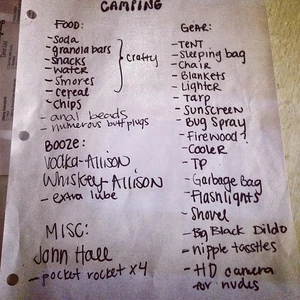 CAMPING
FOOD:
- soda
- granola bars
- snacks
- water
- s'mores
- cereal
- chips
Crafty
- anal beads
- numerous butt plugs
BOOZE:
Vodka-Allison
Whiskey-Allison
- extra lube
MISC:
John Hall
- pocket rocket x4
GEAR:
- TENT
- Sleeping bag
- Chair
- Blankets
- Lighter
- Tarp
- Sunscreen
- Bug Spray
- Firewood?
- Cooler
- TP
- Garbage Bag
- Flashlights
- Shovel
- Big Black Dildo
- nipple tassties
- HD camera
for nudes